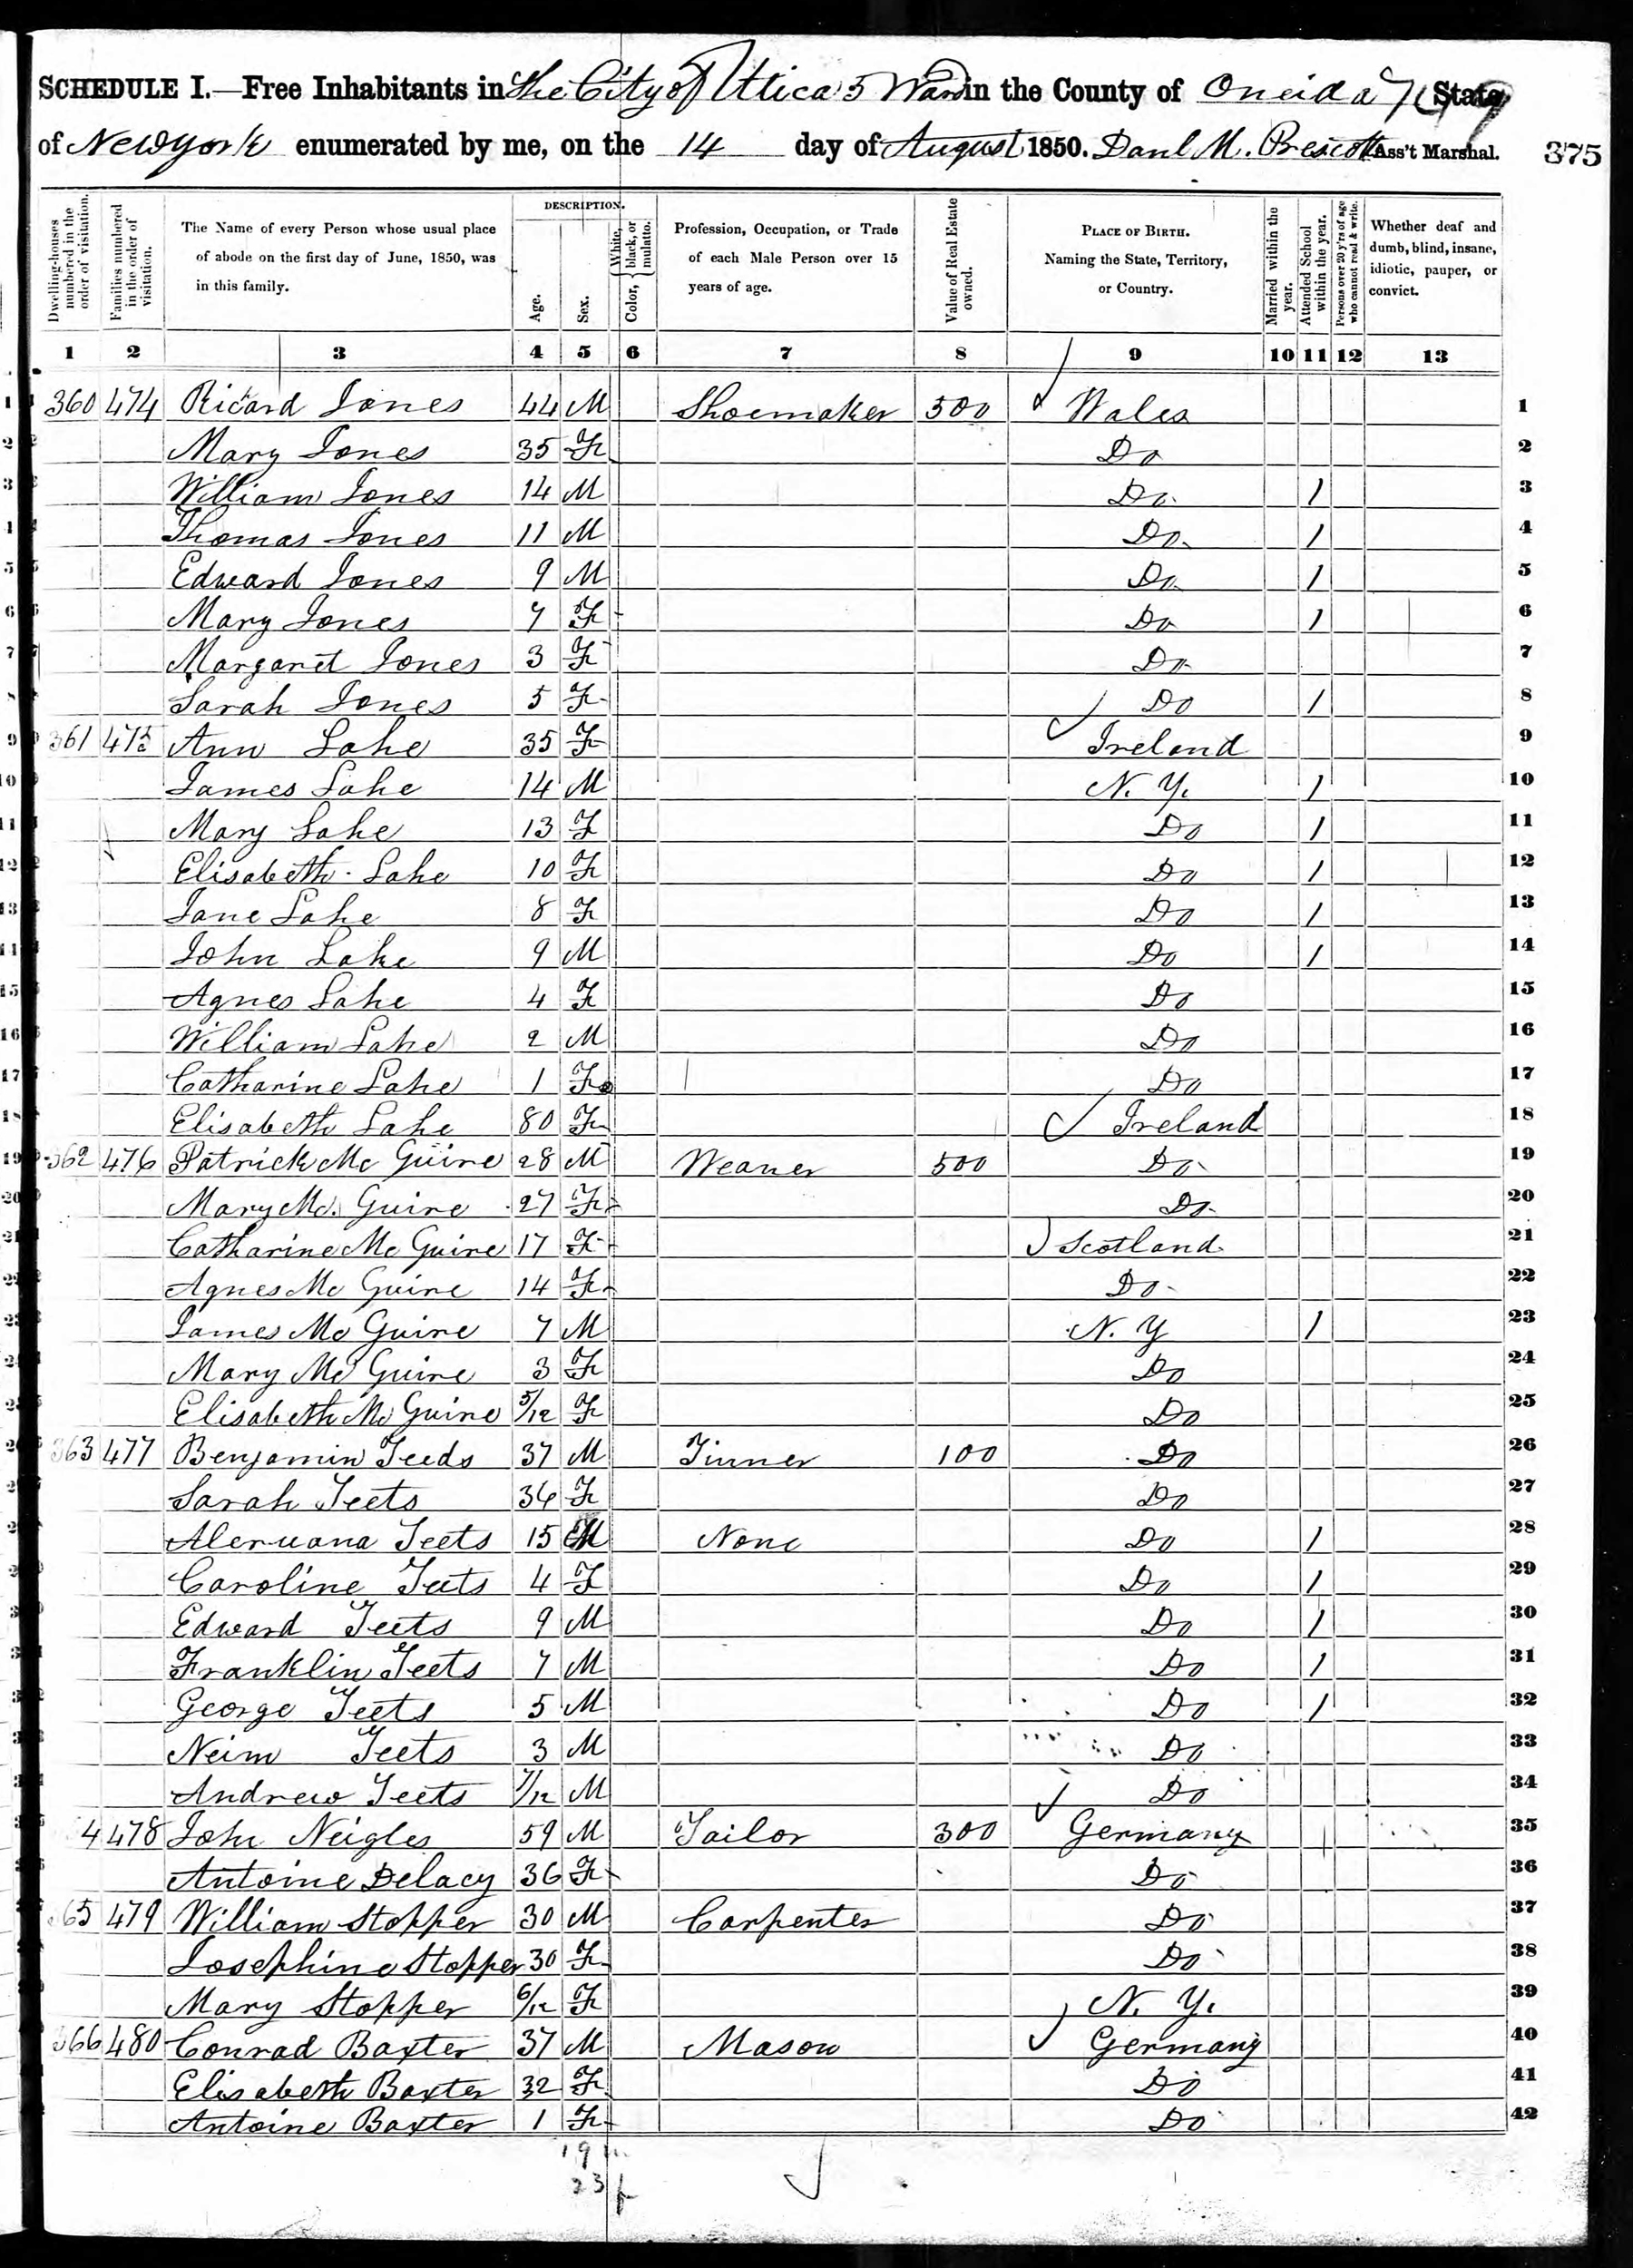 SCHEDULE I.—Free Inhabitants in the City of Utica 5 Ward in the County of Oneida State
of New York enumerated by me, on the 14 day of August 1850. Danl M. Prescott Ass't Marshal. 375
Dwelling-houses numbered in the order of visitation.
Families numbered in the order of visitation.
The Name of every Person whose usual place of abode on the first day of June, 1850, was in this family.
DESCRIPTION.
Age.
Sex.
Color, White, black, or mulatto.
Profession, Occupation, or Trade of each Male Person over 15 years of age.
Value of Real Estate owned.
PLACE OF BIRTH. Naming the State, Territory, or Country.
Married within the year.
Attended School within the year.
Persons over 20 y'rs of age who cannot read & write.
Whether deaf and dumb, blind, insane, idiotic, pauper, or convict.
1 2 3 4 5 6 7 8 9 10 11 12 13
1 360 474 Ricard Jones 44 M Shoemaker 500 Wales 1
2 Mary Jones 35 F Do 2
3 William Jones 14 M Do 1 3
4 Thomas Jones 11 M Do 1 4
5 Edward Jones 9 M Do 1 5
6 Mary Jones 7 F Do 1 6
7 Margaret Jones 3 F Do 7
8 Sarah Jones 5 F Do 1 8
9 361 475 Ann Lahe 35 F Ireland 9
10 James Lahe 14 M N. Y. 1 10
11 Mary Lahe 13 F Do 1 11
12 Elisabeth Lahe 10 F Do 1 12
13 Jane Lahe 8 F Do 1 13
14 John Lahe 9 M Do 1 14
15 Agnes Lahe 4 F Do 15
16 William Lahe 2 M Do 16
17 Catharine Lahe 1 F Do 17
18 Elisabeth Lahe 80 F Ireland 18
19 362 476 Patrick Mc Guire 28 M Weaver 500 Do 19
20 Mary Mc Guire 27 F Do 20
21 Catharine Mc Guire 17 F Scotland 21
22 Agnes Mc Guire 14 F Do 22
23 James Mc Guire 7 M N. Y 1 23
24 Mary Mc Guire 3 F Do 24
25 Elisabeth Mc Guire 5/12 F Do 25
26 363 477 Benjamin Teeds 37 M Tinner 100 Do 26
27 Sarah Teets 36 F Do 27
28 Teets 15 M None Do 1 28
29 Caroline Teets 4 F Do 1 29
30 Edward Teets 9 M Do 1 30
31 Franklin Teets 7 M Do 1 31
32 George Teets 5 M Do 1 32
33 Neim Teets 3 M Do 33
34 Andrew Teets 7/12 M Do 34
35 4 478 John Neigles 59 M Tailor 300 Germany 35
36 Antoine Delacy 36 F Do 36
37 365 479 William Stopper 30 M Carpenter Do 37
38 Josephine Stopper 30 F Do 38
39 Mary Stopper 6/12 F N. Y. 39
40 366 480 Conrad Baxter 37 M Mason Germany 40
41 Elisabeth Baxter 32 F Do 41
42 Antoine Baxter 1 F Do 42
19 m
23 f